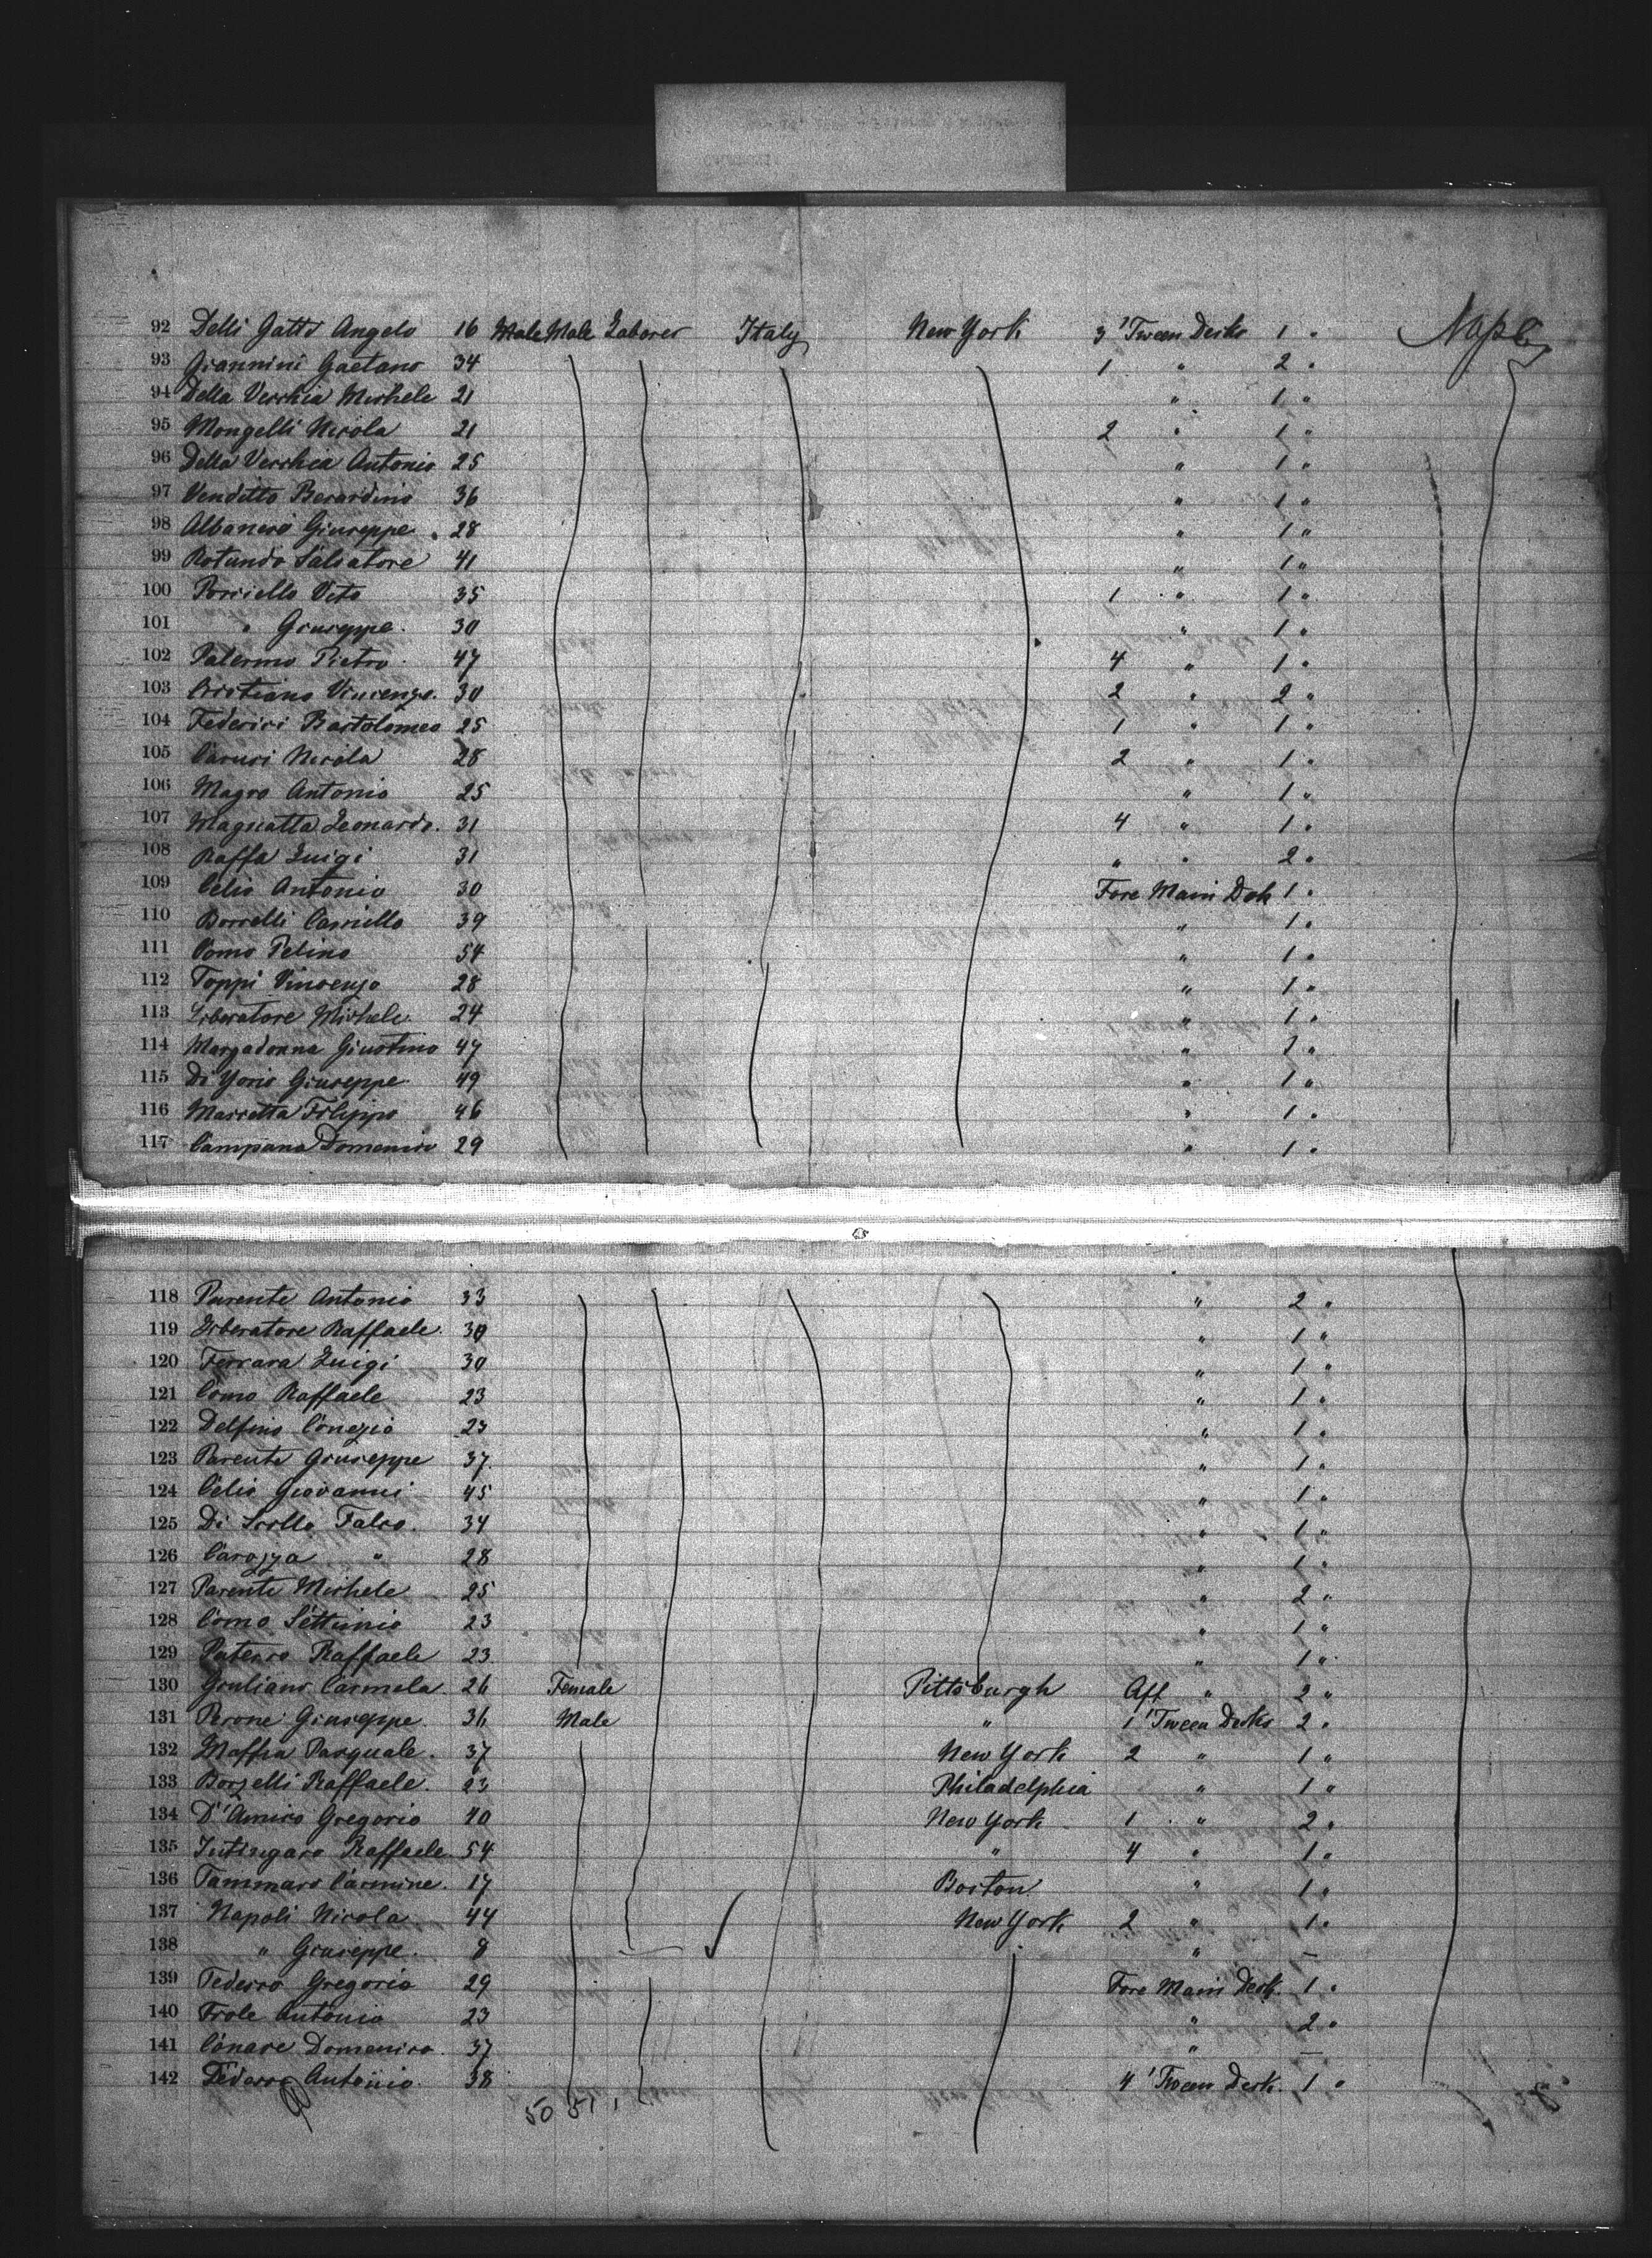 92 Delli Gatti Angelo 16 Male Male Laborer Italy New York 3 'Tween Decks 1 " Naples
93 Giannini Gaetano 34 1 " 2 "
94 Della Vecchia Michele 21 " 1 "
95 Mongelli Nicola 21 2 " 1 "
96 Della Vecchia Antonio 25 " 1 "
97 Venditto Berardino 36 " 1 "
98 Albanese Giuseppe 28 " 1 "
99 Rotundo Salvatore 41 " 1 "
100 Porciello Vito 35 1 " 1 "
101 " Giuseppe 30 " 1 "
102 Palermo Pietro 47 4 " 1 "
103 Cristiano Vincenzo 30 2 " 2 "
104 Federici Bartolomeo 25 1 " 1 "
105 Caruri Nicola 28 2 " 1 "
106 Magro Antonio 25 " 1 "
107 Leonardo 31 4 " 1 "
108 Raffa Luigi 31 " " 2 "
109 Celio Antonio 30 Fore Main Dek 1 "
110 Borrelli Camillo 39 " 1 "
111 Como Pelino 54 " 1 "
112 Toppi Vincenzo 28 " 1 "
113 Liberatore Michele 24 " 1 "
114 Margadonna Giustino 47 " 1 "
115 Di Yorio Giuseppe 49 " 1 "
116 Marcotta Filippo 46 " 1 "
117 Campana Domenico 29 " 1 "
118 Parente Antonio 33 " 2 "
119 Liberatore Raffaele 30 " 1 "
120 Ferrara Luigi 30 " 1 "
121 Como Raffaele 23 " 1 "
122 Delfino 23 " 1 "
123 Parente Giuseppe 37 " 1 "
124 Celio Giovanni 45 " 1 "
125 Di Scollo Falco 34 " 1 "
126 Carozza " 28 " 1 "
127 Parente Michele 25 " 2 "
128 Como Settimio 23 " 1 "
129 Raffaele 23 " 1 "
130 Giuliano Carmela 26 Female Pittsburgh Aft " 2 "
131 Perone Giuseppe 36 Male " 1 'Tween Decks 2 "
132 Maffia Pasquale 37 New York 2 " 1 "
133 Borzelli Raffaele 23 Philadelphia " 1 "
134 D'Amico Gregorio 40 New York 1 " 2 "
135 Intingaro Raffaele 54 " 4 " 1 "
136 Tammaro Carmine 17 Boston " 1 "
137 Napoli Nicola 44 New York 2 " 1 "
138 " Giuseppe 8 " –
139 Tedesco Gregorio 29 Fore Main Deck 1 "
140 Frole Antonio 23 " 2 "
141 Conare Domenico 37 " –
142 Antonio 38 4 'Tween Deck 1 "
50 51 1